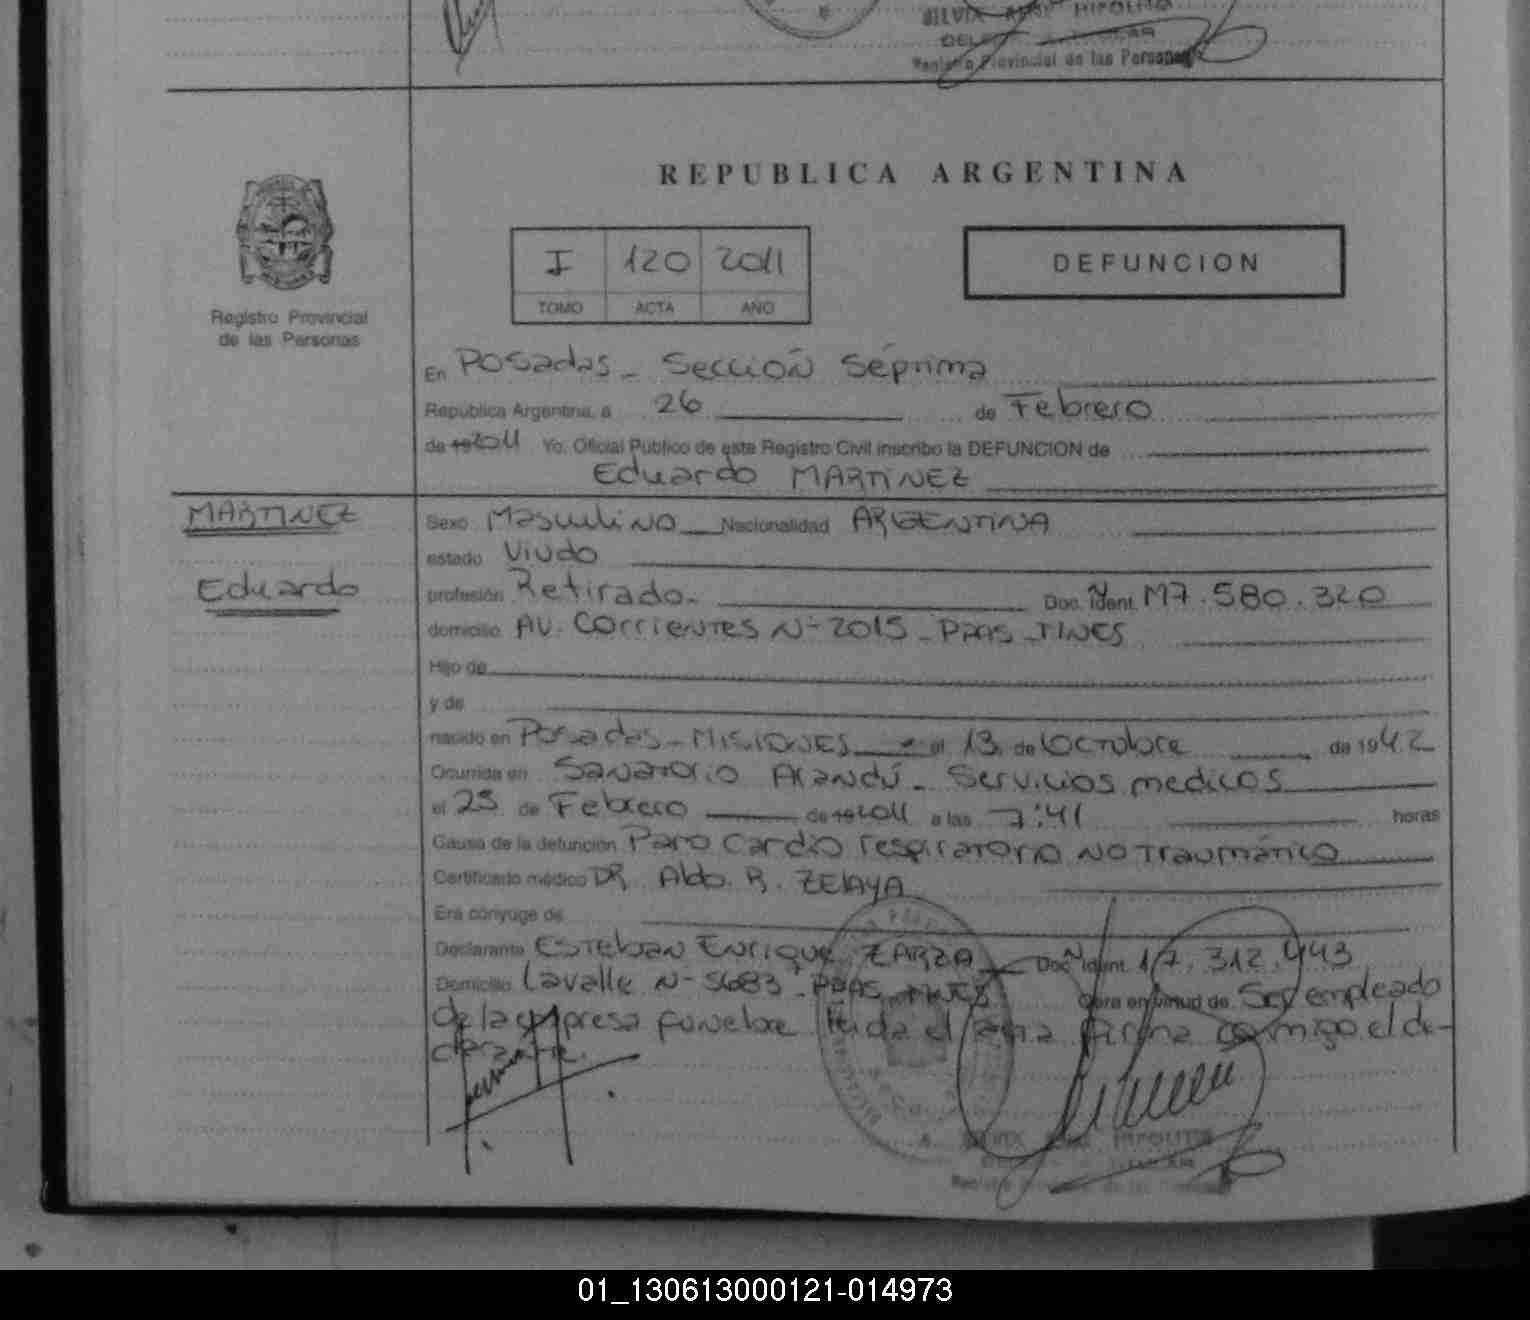 SILVIA HIPOLITO
Registro Provincial de las Personas
REPUBLICA ARGENTINA
I 120 2011
TOMO ACTA AÑO
DEFUNCION
Registro Provincial
de las Personas
En Posadas - Sección Séptima
República Argentina, a 26 de Febrero
de 19 2011 Yo, Oficial Público de este Registro Civil inscribo la DEFUNCION de
Eduardo MARTINEZ
MARTINEZ
Eduardo
Sexo Masculino Nacionalidad ARGENTINA
estado Viudo
profesión Retirado - Doc. Ident. M7.580.320
domicilio AV. Corrientes N- 2015 - PDAS - MNES
Hijo de
y de
nacido en Posadas - Misiones - el 13 de Octubre de 1942
Ocurrida en Sanatorio Arandú - Servicios medicos
el 25 de Febrero de 19 2011 a las 7:41 horas
Causa de la defunción Paro Cardio respiratorio NO Traumático
Certificado médico DR. Aldo. R. ZELAYA
Era cónyuge de
Declarante Esteban Enrique ZARZA Doc. Ident. 17.312.443
Domicilio Lavalle N- 5683 - PDAS - MNES Obra en virtud de Ser empleado
de la empresa funebre leida el acta firma conmigo el de-
clarante.
HIPOLITO
01_130613000121-014973